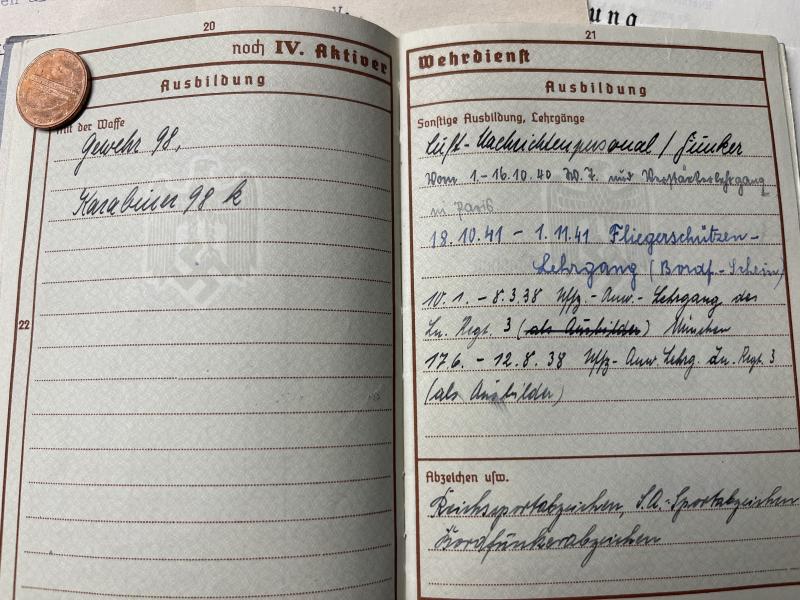 20
noch IV. Aktiver
Ausbildung
Mit der Waffe
Gewehr 98,
Karabiner 98 k
22
ung
21
Wehrdienst
Ausbildung
Sonstige Ausbildung, Lehrgänge
Luft-Nachrichtenpersonal / Funker
Vom 1.-16.10.40 und Verstärkerlehrgang
in Paris
18.10.41 - 1.11.41 Fliegerschützen-
Lehrgang (Bordf.-Schein)
10.1. - 8.3.38 Uffz.-Anw.-Lehrgang des
Ln. Regt. 3 (als Ausbilder) München
17.6. - 12.8.38 Uffz-Anw Lehrg. Ln. Regt. 3
(als Ausbilder)
Abzeichen usw.
Reichssportabzeichen, S.A.-Sportabzeichen
Bordfunkerabzeichen